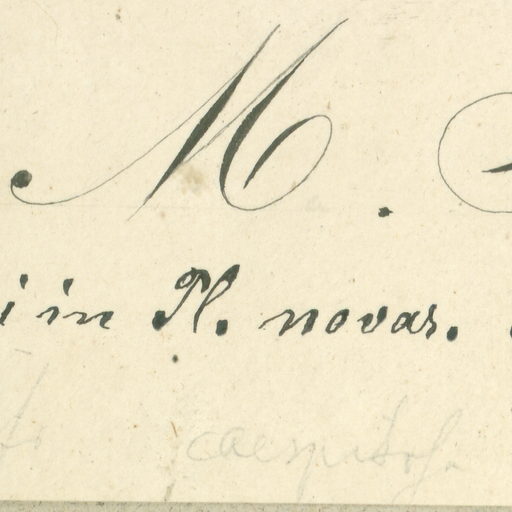 M.
i in Pl. novar.
caespitosa